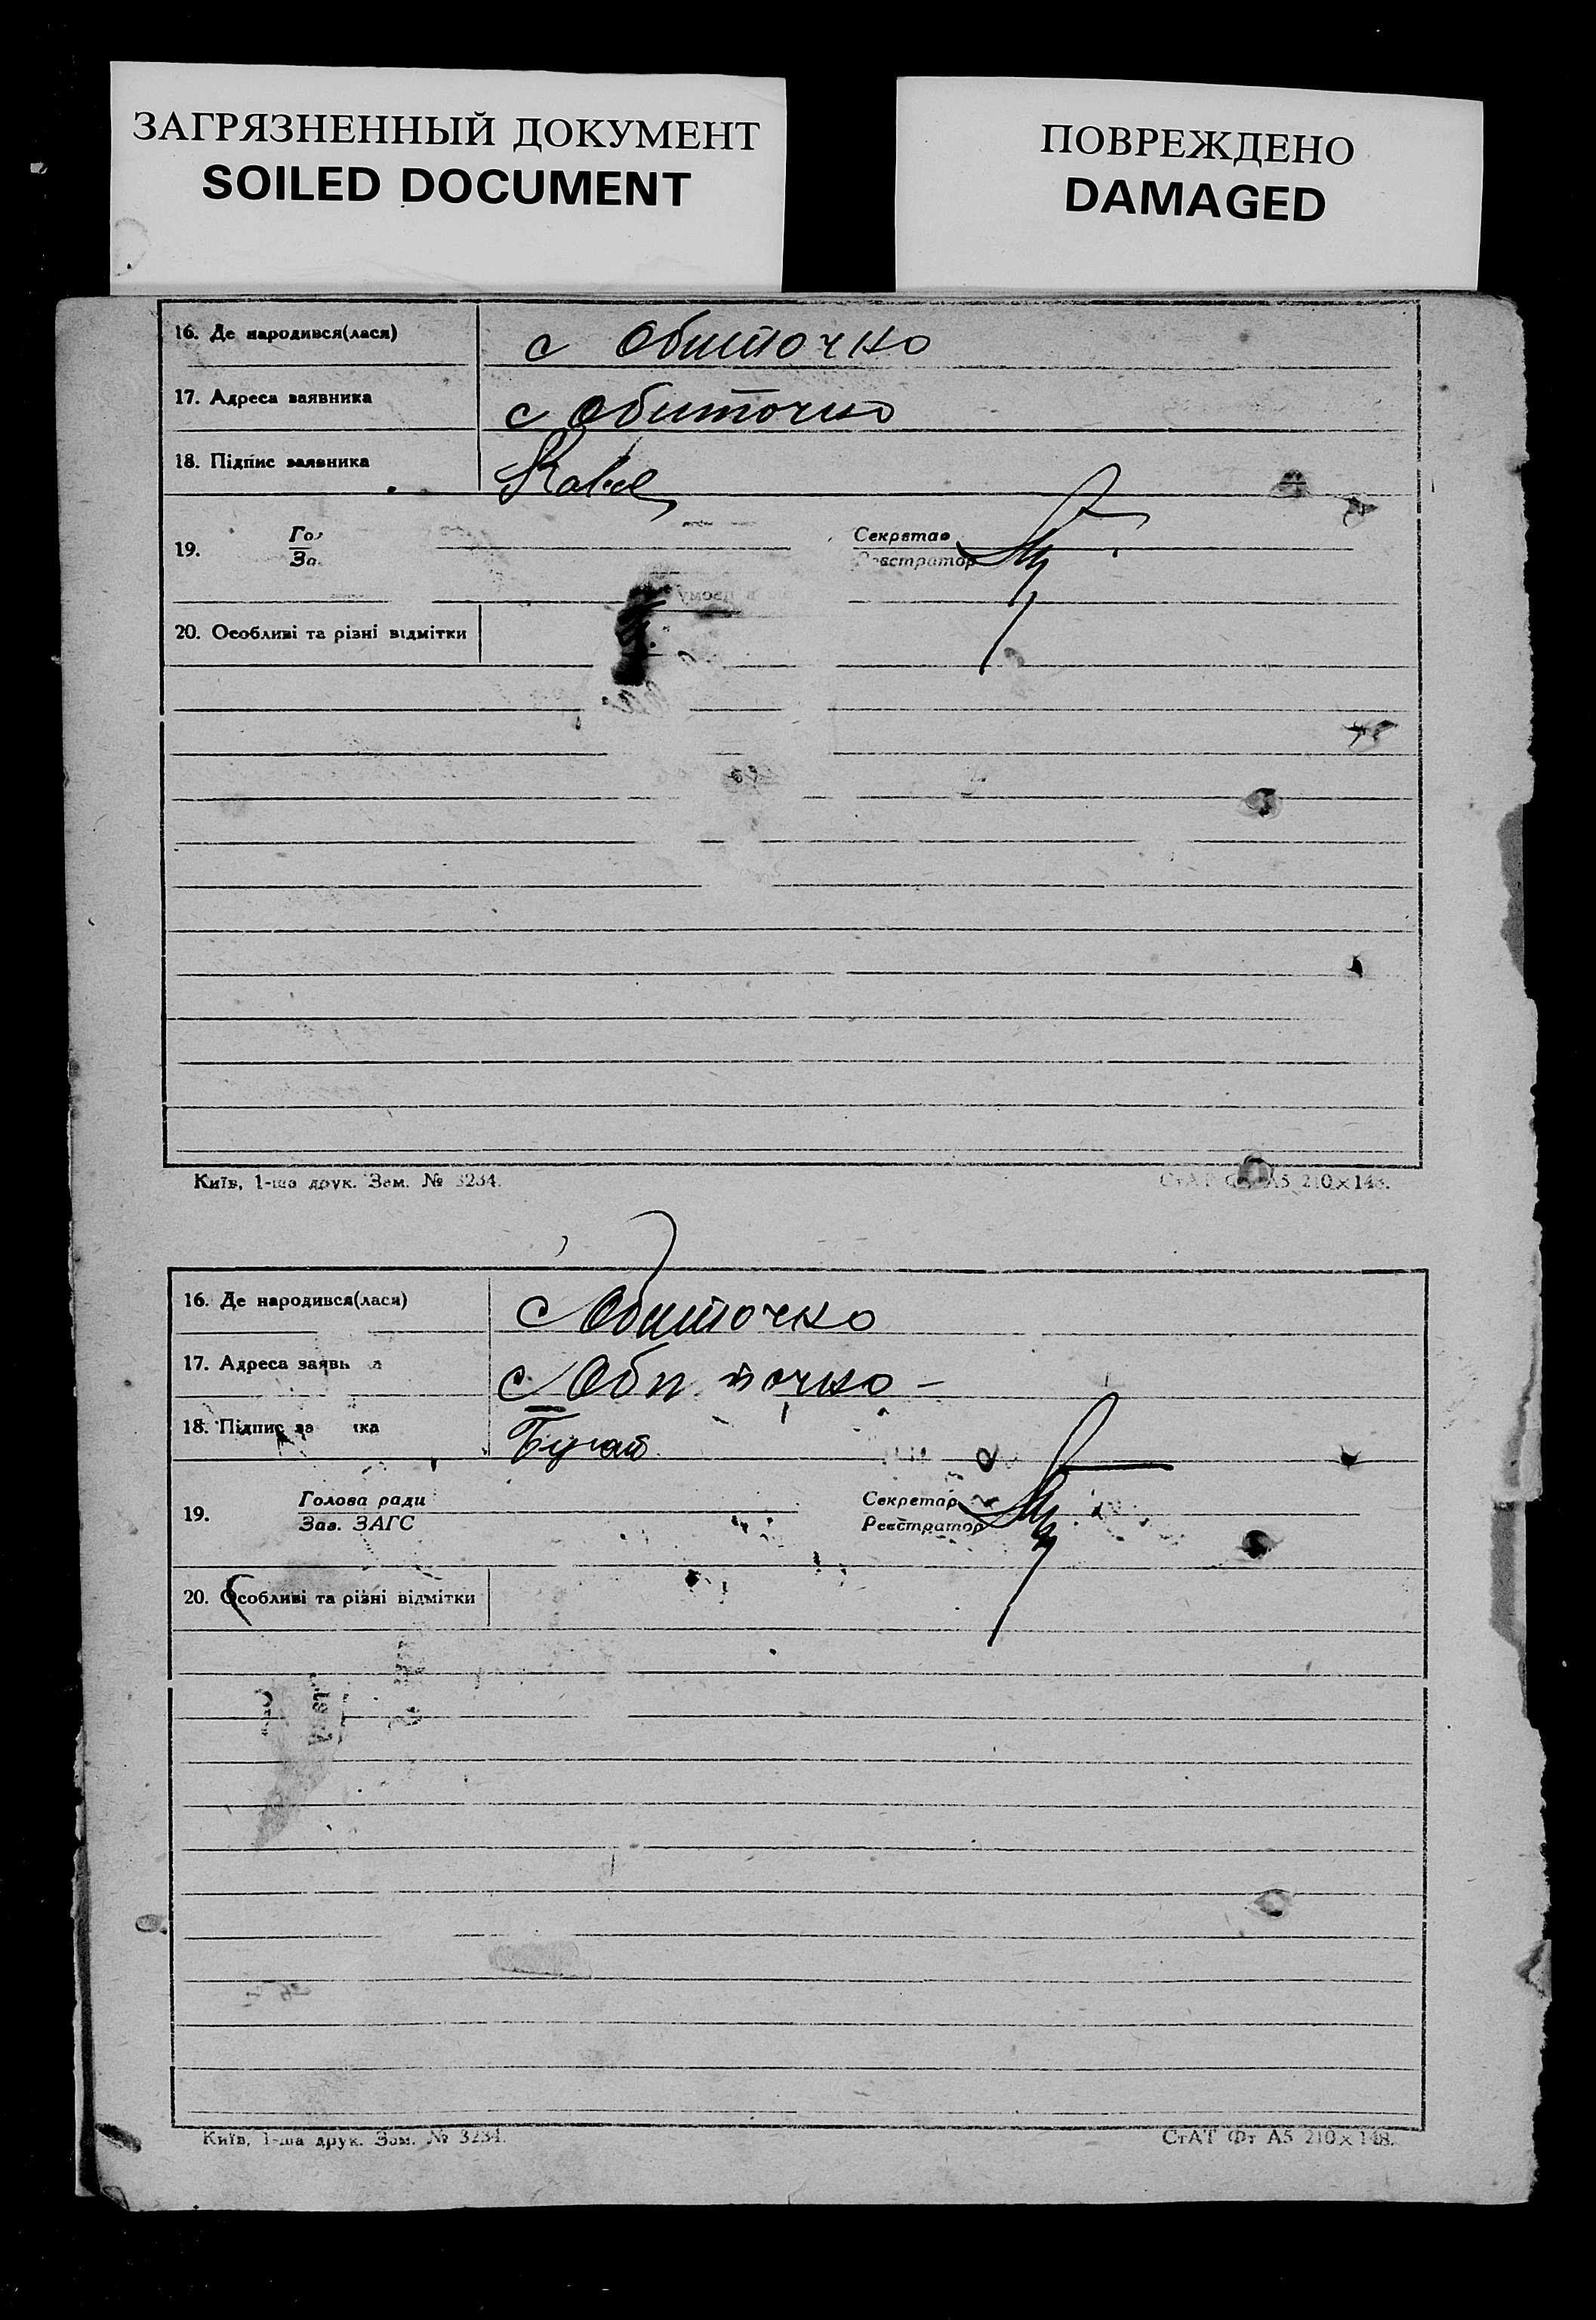 ЗАГРЯЗНЕННЫЙ ДОКУМЕНТ
SOILED DOCUMENT
ПОВРЕЖДЕНО
DAMAGED
16. Де народився(лася) с Обиточко
17. Адреса заявника с Обиточко
18. Підпис заявника
19. Го
За
Секретар
Реєстратор
20. Особливі та різні відмітки
Київ, 1-ша друк. Зам. № 3234.
СтАТ Фт А5 210×148.
16. Де народився(лася) с Обиточко
17. Адреса заявн а с Обиточко –
18. Підпис за ка Бугай
19. Голова ради
Зав. ЗАГС
Секретар
Реєстратор
20. Особливі та різні відмітки
Київ, 1-ша друк. Зам. № 3234.
СтАТ Фт А5 210×148.